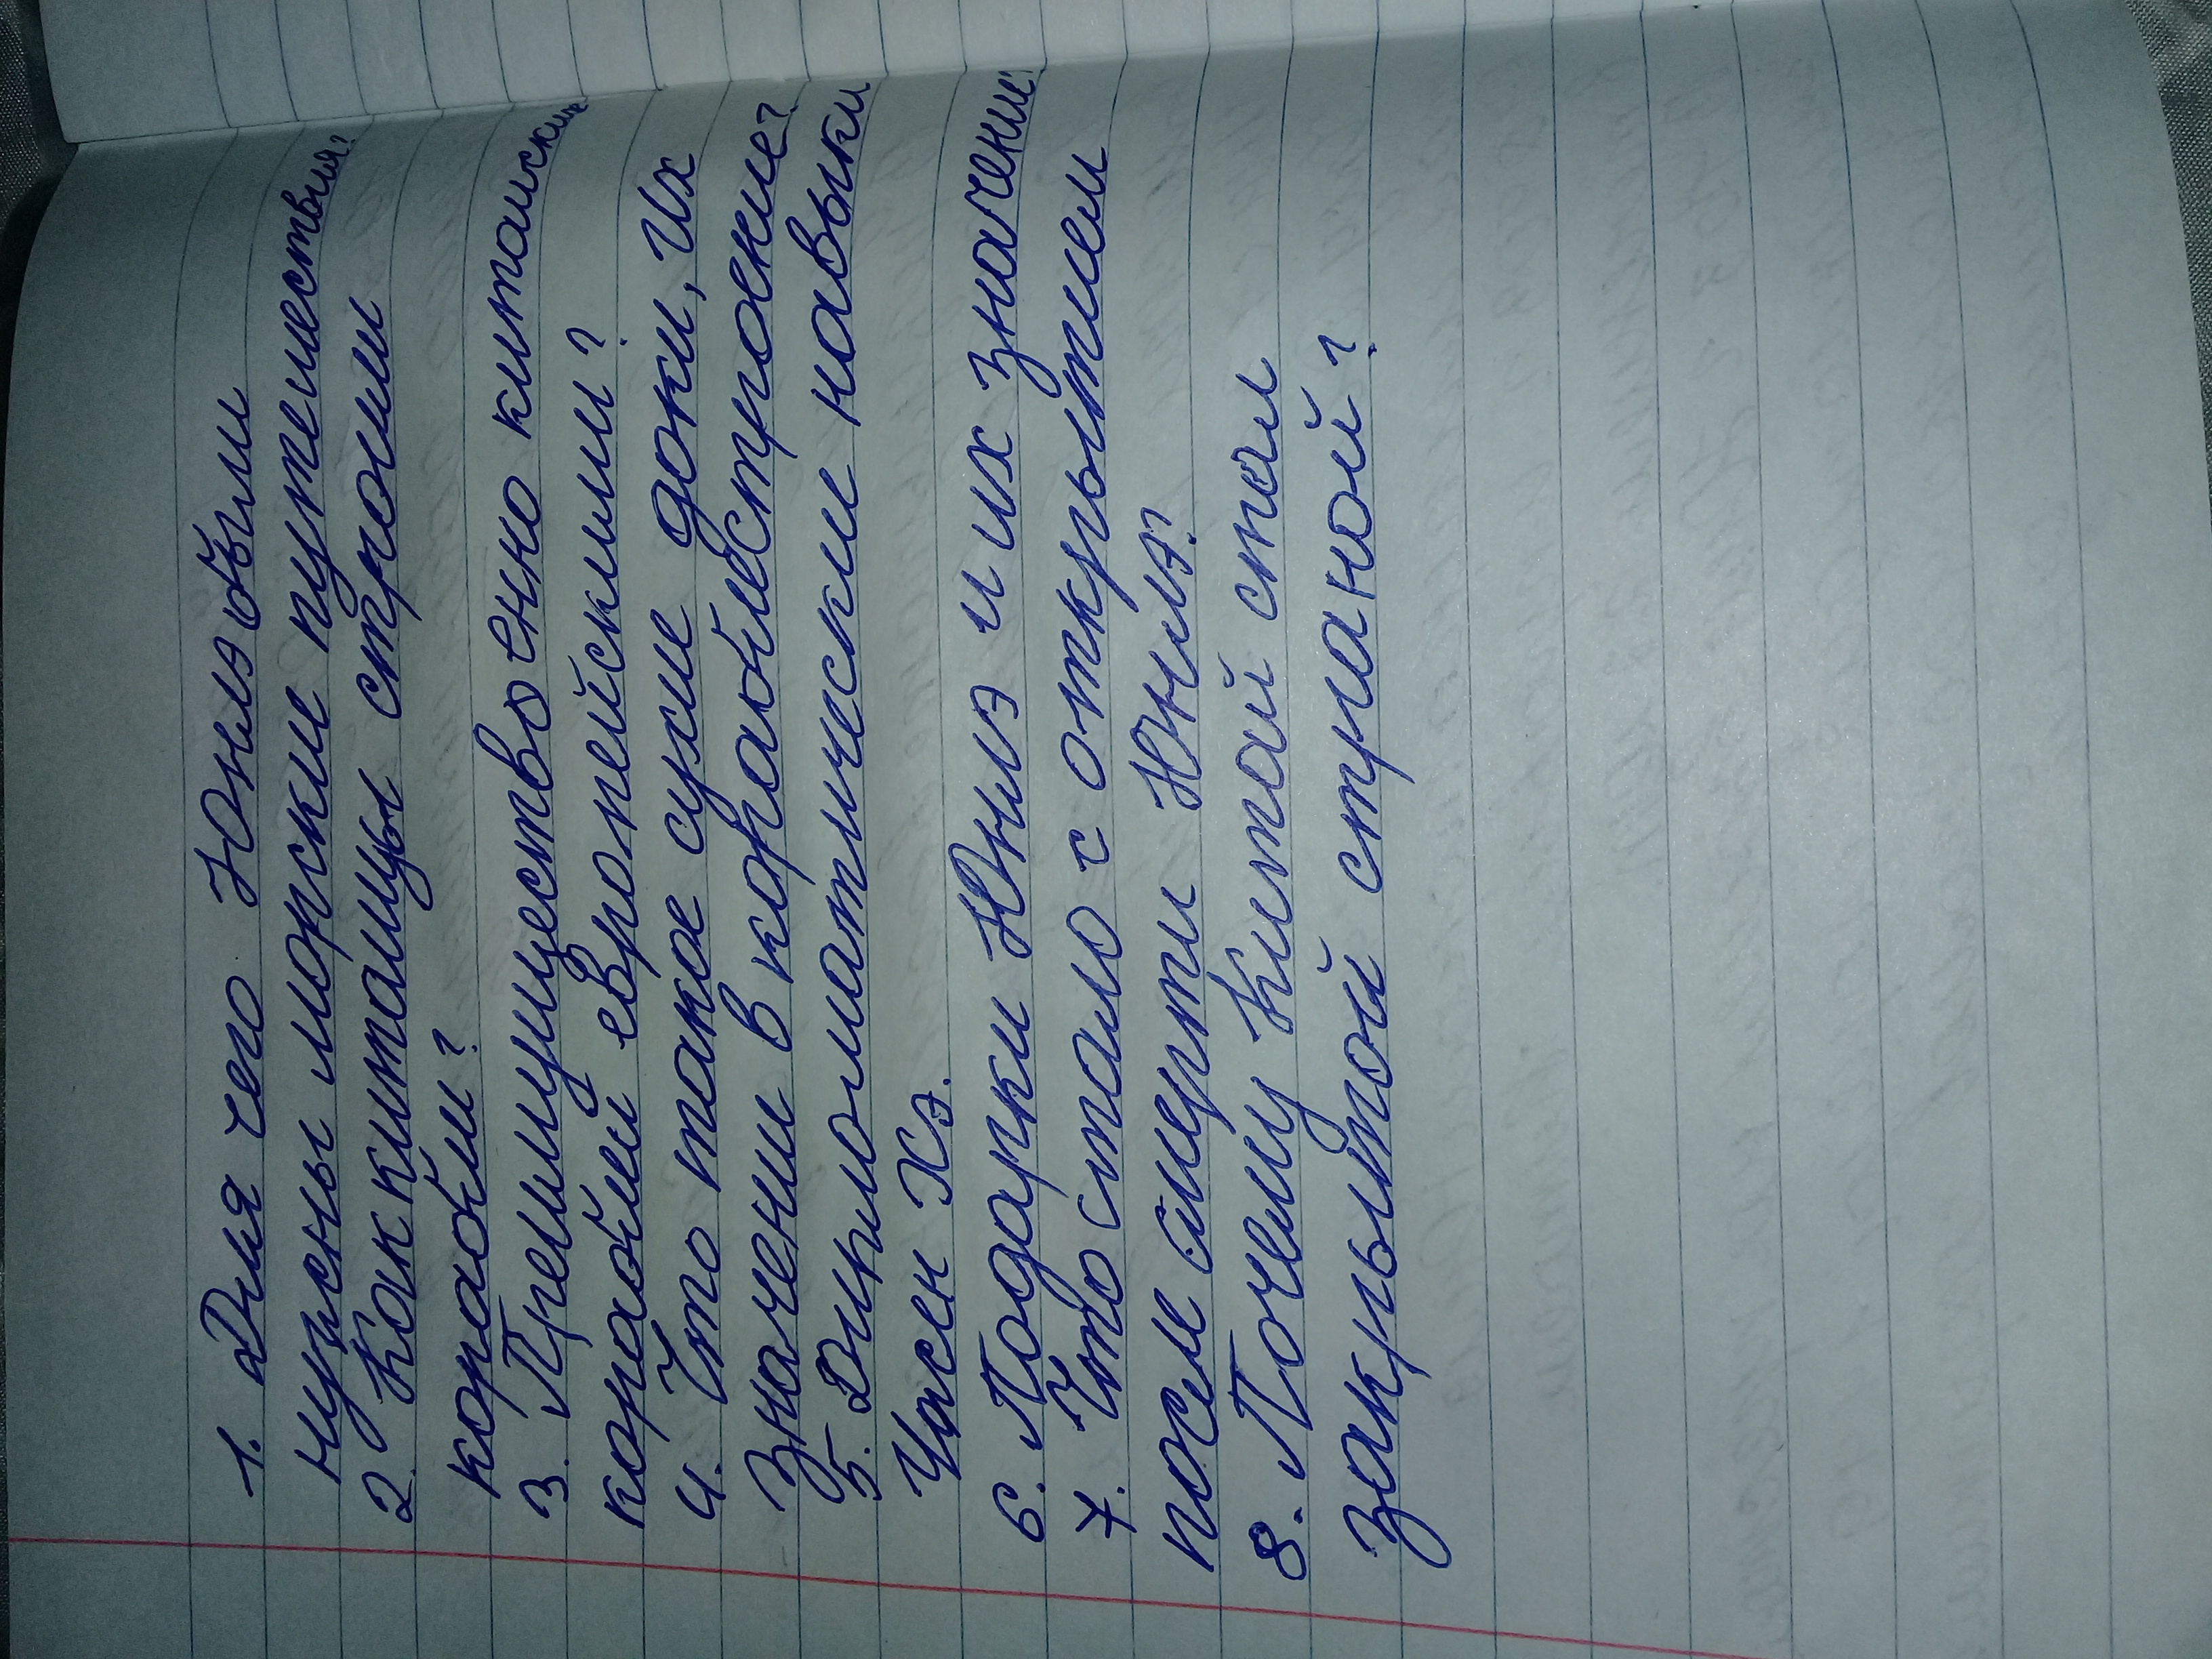 1. Для чего Юнлэ были
нужны морские путешествия?
2. Как китайцы строили
корабли?
3. Преимущество енно китайских
кораблей европейскими?
4. Что такое сухие доки, их
значении в кораблестроение?
5. Дипломатические навыки
Чжен Хэ.
6. Подарки Юнлэ и их значение
7. Что стало с открытием
посл смерти Юнлэ?
8. Почему Китай стал
закрытой страной?